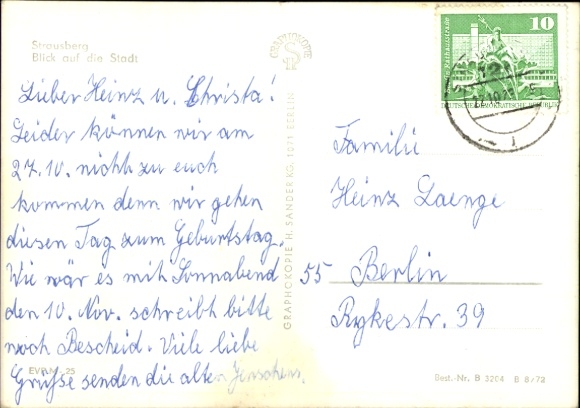 Strausberg
Blick auf die Stadt
Lieber Heinz u. Christa!
Leider können wir am
27.10. nicht zu euch
kommen denn wir gehen
diesen Tag zum Geburtstag.
Wie wär es mit Sonnabend
den 10. Nov. schreibt bitte
noch Bescheid. Viele liebe
Grüße senden die alten
GRAPHOKOPIE
GRAPHOKOPIE H. SANDER KG, 1071 BERLIN
10
DEUTSCHE DEMOKRATISCHE REPUBLIK
Familie
Heinz Laenge
55 Berlin
Rykestr. 39
Best.-Nr. B 3204 B 8/72